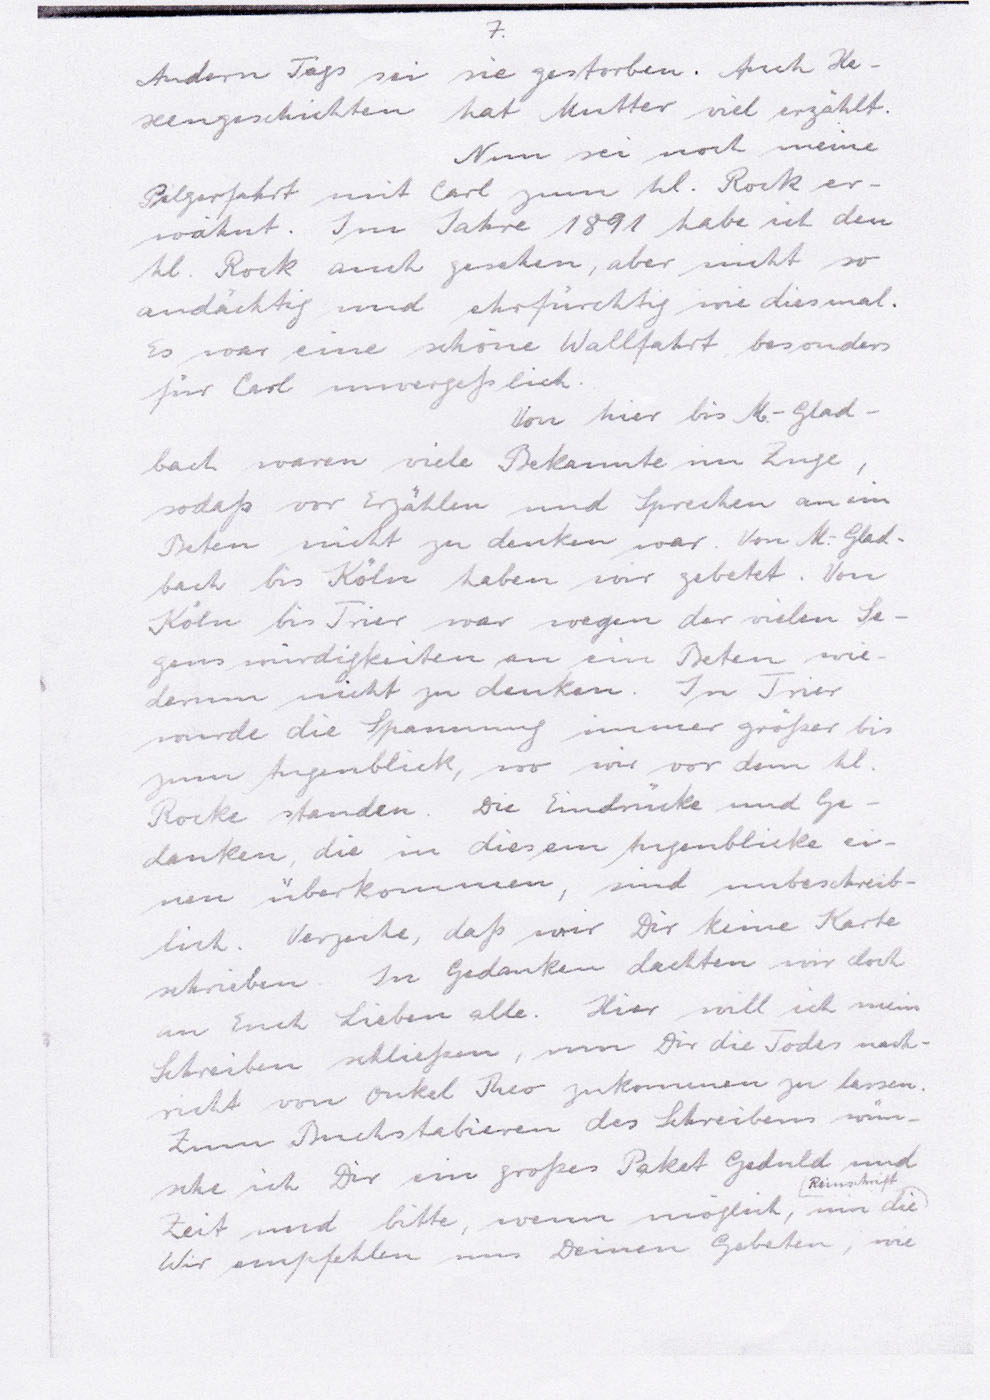 7.
Andern Tags sei sie gestorben. Auch He-
xengeschichten hat Mutter viel erzählt.
Nun sei noch meine
Pilgerfahrt mit Carl zum hl. Rock er-
wähnt. Im Jahre 1891 habe ich den
hl. Rock auch gesehen, aber nicht so
andächtig und ehrfürchtig wie diesmal.
Es war eine schöne Wallfahrt, besonders
für Carl unvergeßlich.
Von hier bis M.-Glad-
bach waren viele Bekannte im Zuge,
sodaß vor Erzählen und Sprechen an ein
Beten nicht zu denken war. Von M.-Glad-
bach bis Köln haben wir gebetet. Von
Köln bis Trier war wegen der vielen Se-
genswürdigkeiten an ein Beten wie-
derum nicht zu denken. In Trier
wurde die Spannung immer größer bis
zum Augenblick, wo wir vor dem hl.
Rocke standen. Die Eindrücke und Ge-
danken, die in diesem Augenblicke ei-
nen überkommen, sind unbeschreib-
lich. Verzeihe, daß wir Dir keine Karte
schrieben. In Gedanken dachten wir doch
an Euch Lieben alle. Hier will ich mein
Schreiben schließen, um Dir die Todes nach-
richt von Onkel Theo zukommen zu lassen.
Zum Buchstabieren des Schreibens wün-
sche ich Dir ein großes Paket Geduld und
Reinschrift
Zeit und bitte, wenn möglich, um die
Wir empfehlen uns Deinen Gebeten, wie